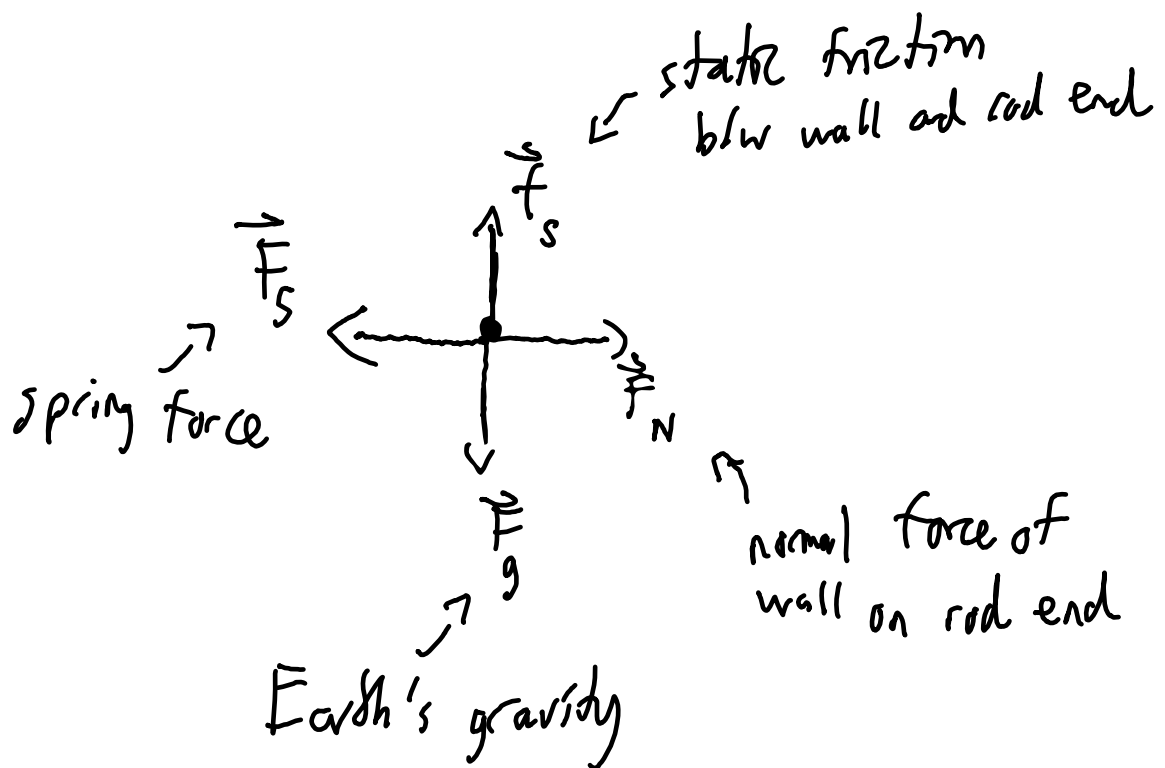 static friction
b/w wall and rod end
f⃗s
F⃗s
spring force
F⃗N
normal force of
wall on rod end
F⃗g
Earth's gravity